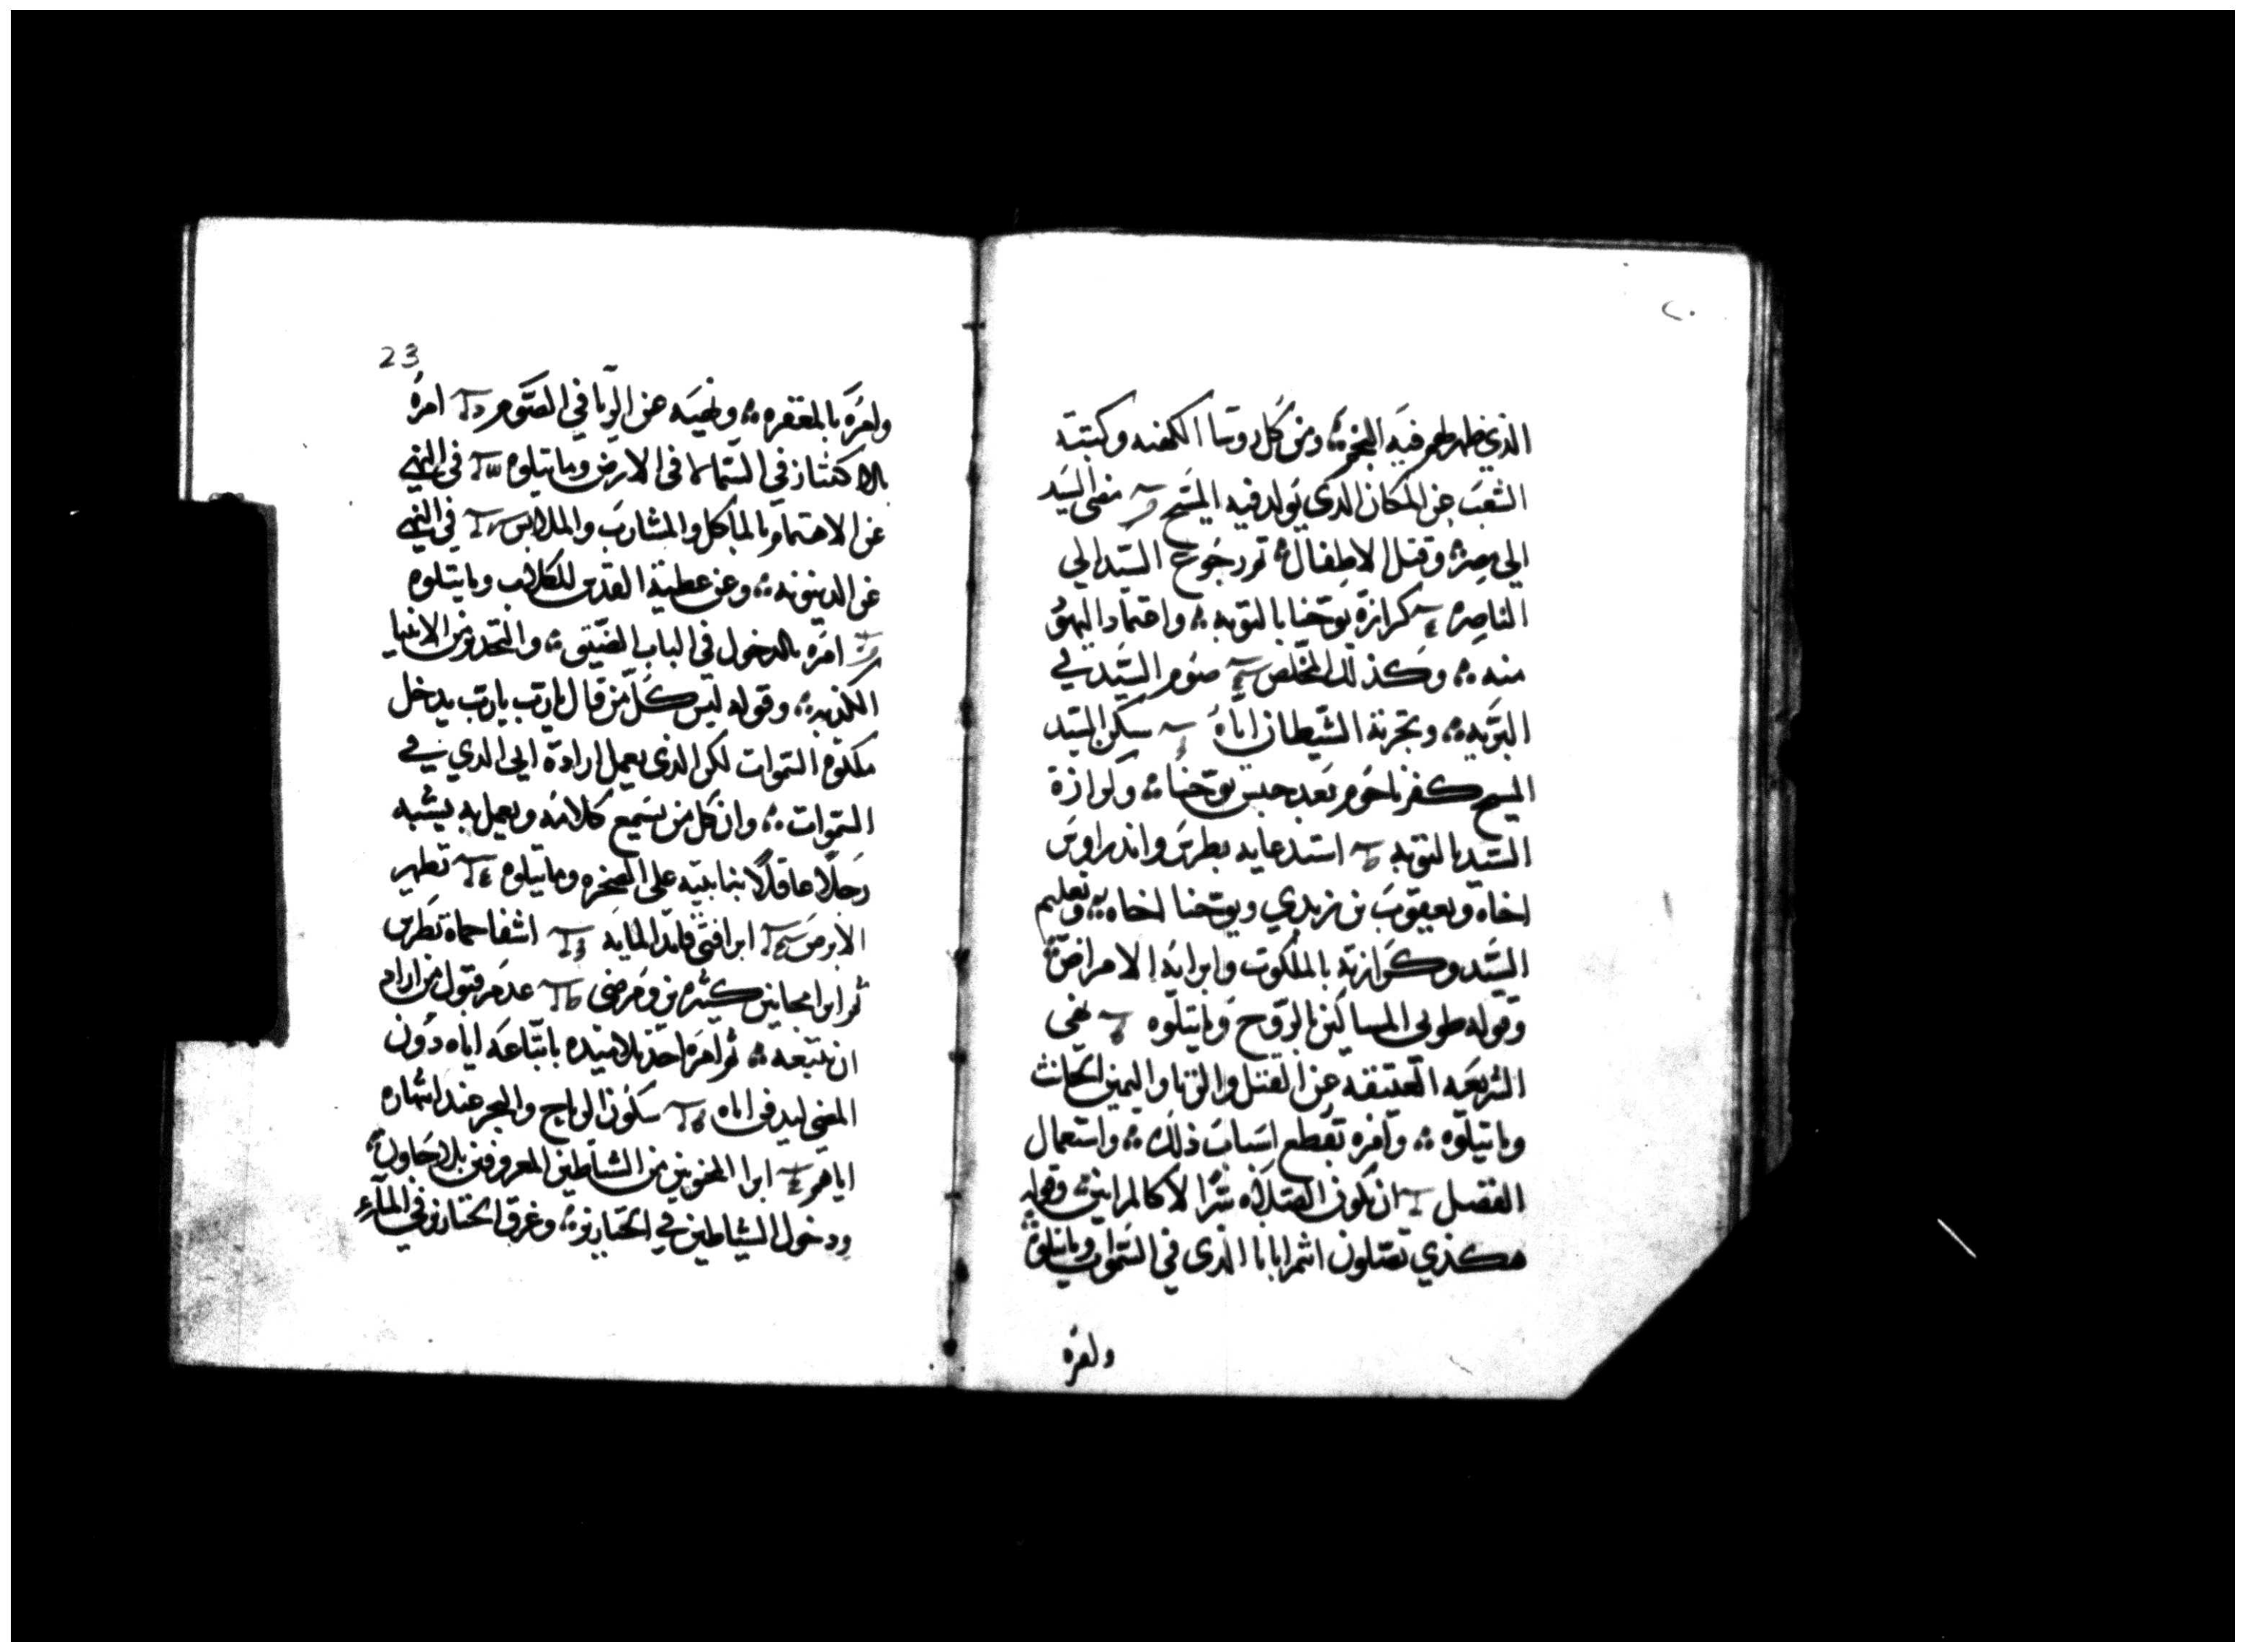 ٢٠
الذي ظهر لهم فيه النجم ؞ ومن كل روسا الكهنه وكتبته
الشعب عن المكان الذي يولد فيه المسيح مضى السيد
الي مصر ؞ وقتل الاطفال ؞ ثم رجوع السيد الي
الناصره كرازة يوحنا بالتوبه ؞ واعتماد اليهود
منه ؞ وكذلك المخلص صوم السيد في
البريه ؞ وتجربة الشيطان اياه سكن السيد
المسيح كفرناحوم بعد حبس يوحنا ؞ وكرازة
السيد بالتوبه استدعايه بطرس واندراوس
اخاه ويعقوب بن زبدي ويوحنا اخاه ؞ وتعليم
السيد وكرازته بالملكوت وابرايه الامراض ؞
وقوله طوبي المساكين بالروح وما يتلوه نهى
الشريعه العتيقه عن القتل والزنا واليمين الحانث
وما يتلوه ؞ وامره بقطع اسباب ذلك ؞ واستعمال
الفضل ان تكون الصلاه سرًا لا كالمرايين ؞ وقوله
هكذي تصلون انتم ابانا الذي في السموات وما يتلوه ؞
وامره
23
وامره بالمغفره ؞ ونهيه عن الريا في الصوم امره
بالاكتناز في السما لا في الارض وما يتلوه في النهي
عن الاهتمام بالماكل والمشارب والملابس في النهي
عن الدينونه ؞ وعن عطية القدس للكلاب وما يتلوه
امره بالدخول في الباب الضيق ؞ والتحدر من الانبيا
الكذبه ؞ وقوله ليس كل من قال يارب يارب يدخل
ملكوة السموات لكن الذي يعمل ارادة ابي الدي في
السموات ؞ وان كل من يسمع كلامه ويعمل به يشبه
رجلًا عاقلًا بنا بيته على الصخره وما يتلوه تطهير
الابرص ابرا فتى قايد المايه اشفا حماة بطرس
ثم ابرا مجانين كثيرين ومرضى عدم قبول من اراد
ان يتبعه ؞ ثم امره احد تلاميذه باتباعه اياه دون
المضي ليدفن اباه سكون الرياح والبحر عند انتهاره
اياهم ابرا المجنونين من الشياطين المعروفين
ودخول الشياطين في الخنازير ؞ وغرق الخنازير في الماء